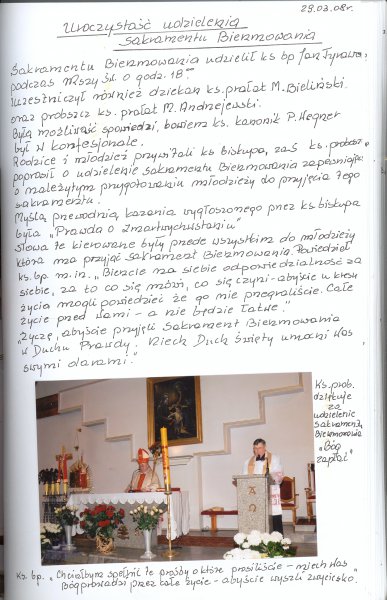 29.03.08r.
Uroczystość udzielenia
Sakramentu Bierzmowania
Sakramentu Bierzmowania udzielił ks bp Jan Tyrawa
podczas Mszy Św. o godz. 18⁰⁰
Uczestniczył również dziekan ks. prałat M. Bieliński
oraz proboszcz ks. prałat M. Andrzejewski.
Była możliwość spowiedzi, bowiem ks. kanonik P. Wegner
był w konfesjonale.
Rodzice i młodzież przywitali ks biskupa, zaś ks. proboszcz
poprosił o udzielenie sakramentu Bierzmowania zapewniając
o należytym przygotowaniu młodzieży do przyjęcia tego
sakramentu.
Myślą przewodnią kazania wygłoszonego przez ks biskupa
była "Prawda o Zmartwychwstaniu"
słowa te kierowane były przede wszystkim do młodzieży
która ma przyjąć sakrament Bierzmowania. Powiedział
ks. bp. m.in. "Bierzcie na siebie odpowiedzialność za
siebie, za to co się mówi, co się czyni - abyście w kresu
życia mogli powiedzieć że go nie przegraliście. Całe
życie przed Wami - a nie będzie łatwe."
"Życzę, abyście przyjęli Sakrament Bierzmowania
w Duchu Prawdy. Niech Duch Święty umacni Was
swymi darami."
Ks. prob.
dziękuje
za
udzielenie
sakramentu
Bierzmowania
"Bóg
zapłać"
Ks. bp. "Chciałbym spełnić te prośby o które prosiliście - niech Was
Bóg prowadzi przez całe życie - abyście wyszli zwycięsko.